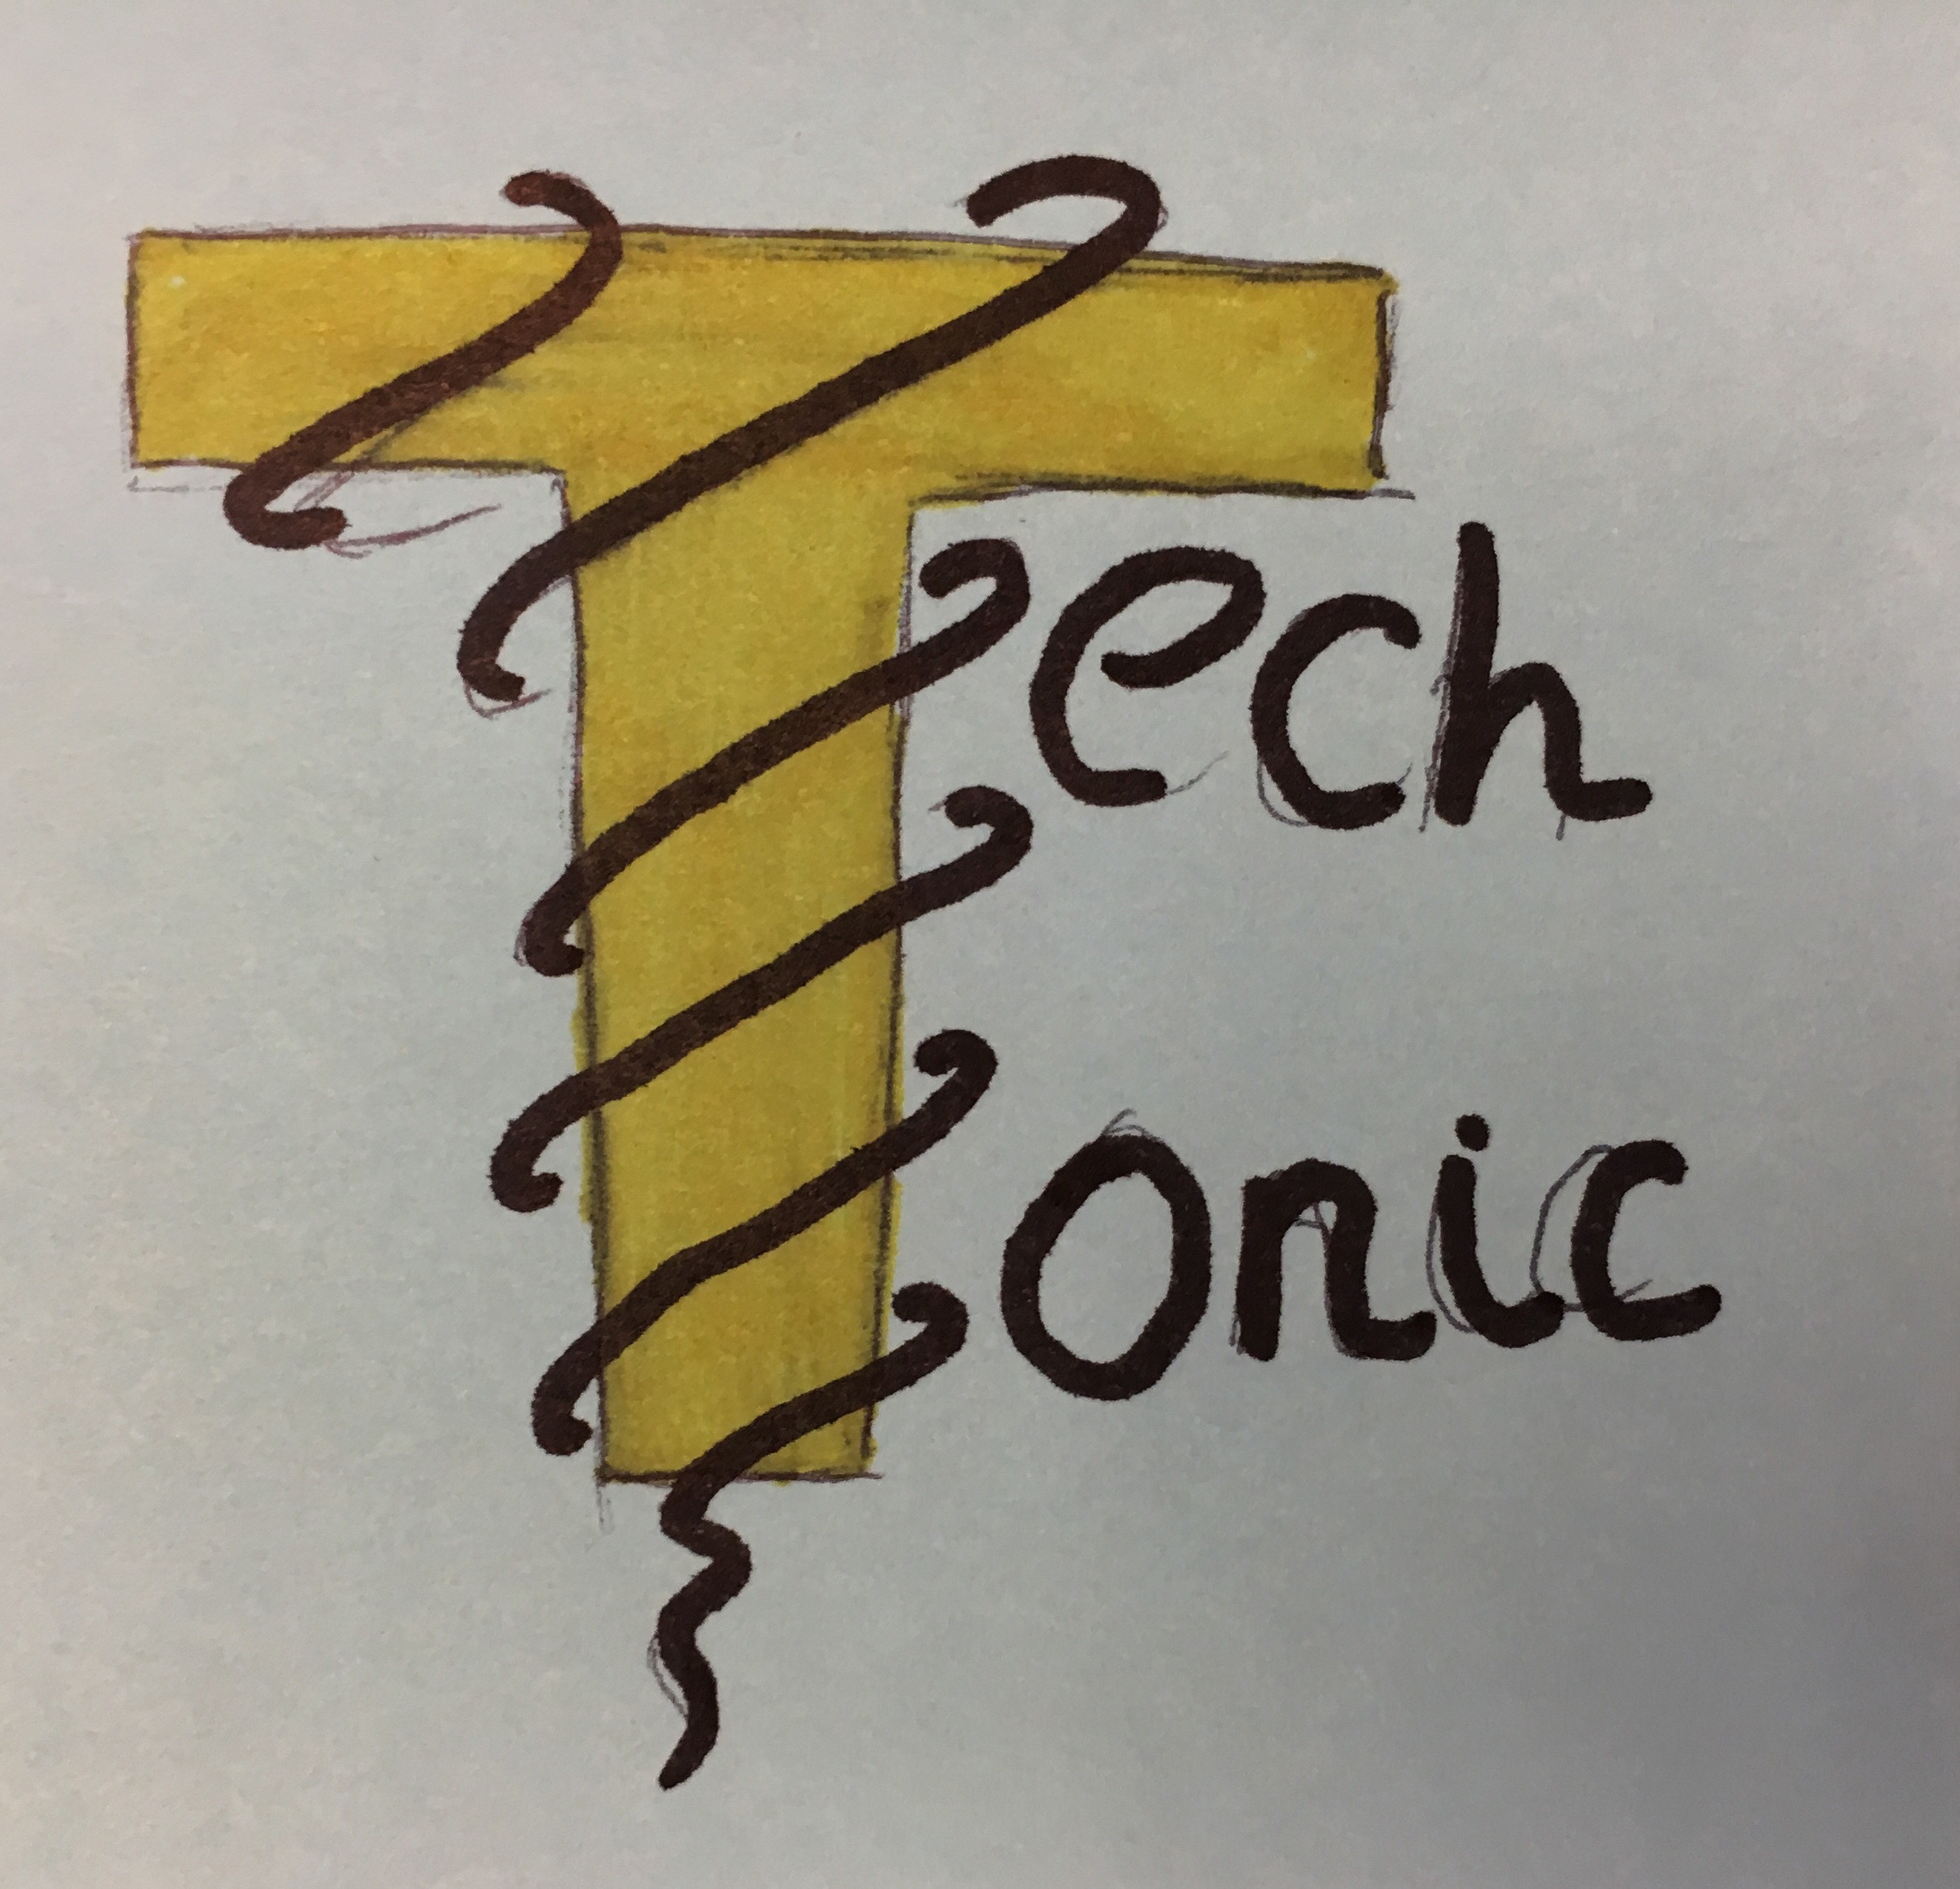 Tech
Tonic